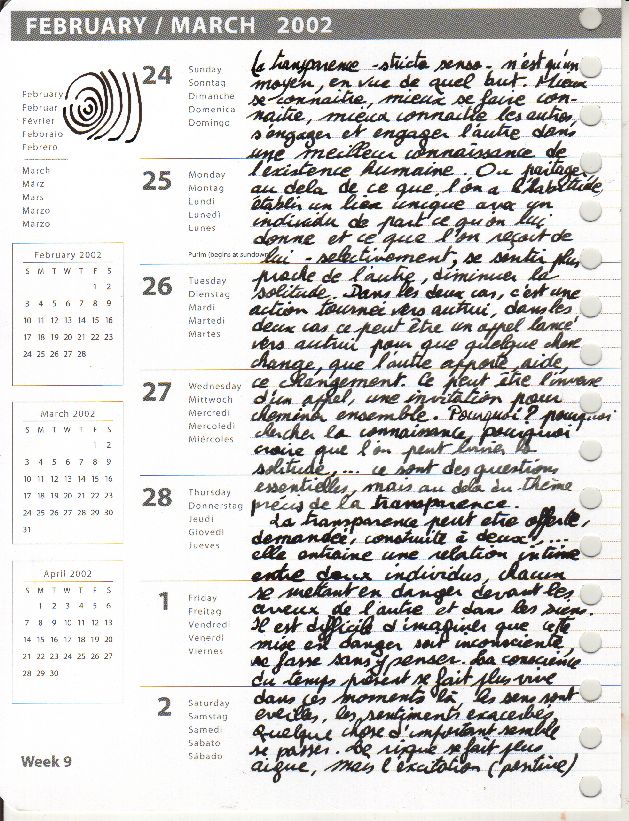 FEBRUARY / MARCH 2002
February
Februar
Février
Febbraio
Febrero
March
März
Mars
Marzo
Marzo
February 2002
S M T W T F S
1 2
3 4 5 6 7 8 9
10 11 12 13 14 15 16
17 18 19 20 21 22 23
24 25 26 27 28
March 2002
S M T W T F S
1 2
3 4 5 6 7 8 9
10 11 12 13 14 15 16
17 18 19 20 21 22 23
24 25 26 27 28 29 30
31
April 2002
S M T W T F S
1 2 3 4 5 6
7 8 9 10 11 12 13
14 15 16 17 18 19 20
21 22 23 24 25 26 27
28 29 30
Week 9
24 Sunday
Sonntag
Dimanche
Domenica
Domingo
25 Monday
Montag
Lundi
Lunedì
Lunes
Purim (begins at sundown)
26 Tuesday
Dienstag
Mardi
Martedì
Martes
27 Wednesday
Mittwoch
Mercredi
Mercoledì
Miércoles
28 Thursday
Donnerstag
Jeudi
Giovedì
Jueves
1 Friday
Freitag
Vendredi
Venerdì
Viernes
2 Saturday
Samstag
Samedi
Sabato
Sábado
La transparence - stricto senso - n'est qu'un
moyen, en vue de quel but. Mieux
se connaitre, mieux se faire con-
naitre, mieux connaitre les autres,
s'engager et engager l'autre dans
une meilleur connaissance de
l'existence humaine. Ou partager
au dela de ce que l'on a l'habitude,
établir un lien unique avec un
individu de part ce qu'on lui
donne et ce que l'on reçoit de
lui - selectivement, se sentir plus
proche de l'autre, diminuer la
solitude. Dans les deux cas, c'est une
action tournée vers autrui, dans les
deux cas ce peut être un appel lancé
vers autrui pour que quelque chose
change, que l'autre apporte aide,
ce changement. Ce peut être l'inverse
d'un appel, une invitation pour
cheminer ensemble. Pourquoi? pourquoi
chercher la connaissance, pourquoi
croire que l'on peut briser la
solitude, ... ce sont des questions
essentielles, mais au delà du thème
précis de la transparence.
La transparence peut etre offerte,
demandée, construite à deux, ...
elle entraine une relation intime
entre deux individus, chacun
se mettant en danger devant les
aveux de l'autre et dans les siens.
Il est difficile d'imaginer que cette
mise en danger soit inconsciente,
se fasse sans y penser. La conscience
du temps présent se fait plus vive
dans ces moments là les sens sont
éveillés, les sentiments exacerbés
Quelque chose d'important semble
se passer. Le risque se fait plus
aigue, mais l'excitation (positive)